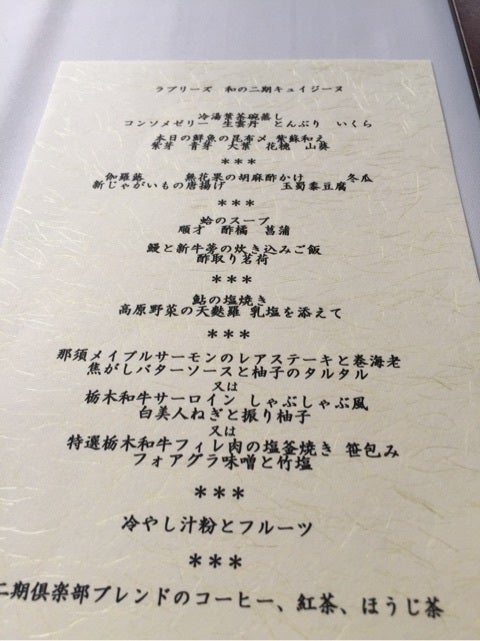 ラブリーズ 和の二期キュイジーヌ
冷湯葉茶碗蒸し
コンソメゼリー 生雲丹 とんぶり いくら
本日の鮮魚の昆布〆 紫蘇和え
紫芽 青芽 大葉 花穂 山葵
***
伽羅蕗 無花果の胡麻酢かけ 冬瓜
新じゃがいもの唐揚げ 玉蜀黍豆腐
***
蛤のスープ
順才 酢橘 菖蒲
鰻と新牛蒡の炊き込みご飯
酢取り茗荷
***
鮎の塩焼き
高原野菜の天麩羅 乳塩を添えて
***
那須メイプルサーモンのレアステーキと巻海老
焦がしバターソースと柚子のタルタル
又は
栃木和牛サーロイン しゃぶしゃぶ風
白美人ねぎと振り柚子
又は
特選栃木和牛フィレ肉の塩釜焼き 笹包み
フォアグラ味噌と竹塩
***
冷やし汁粉とフルーツ
***
二期倶楽部ブレンドのコーヒー、紅茶、ほうじ茶